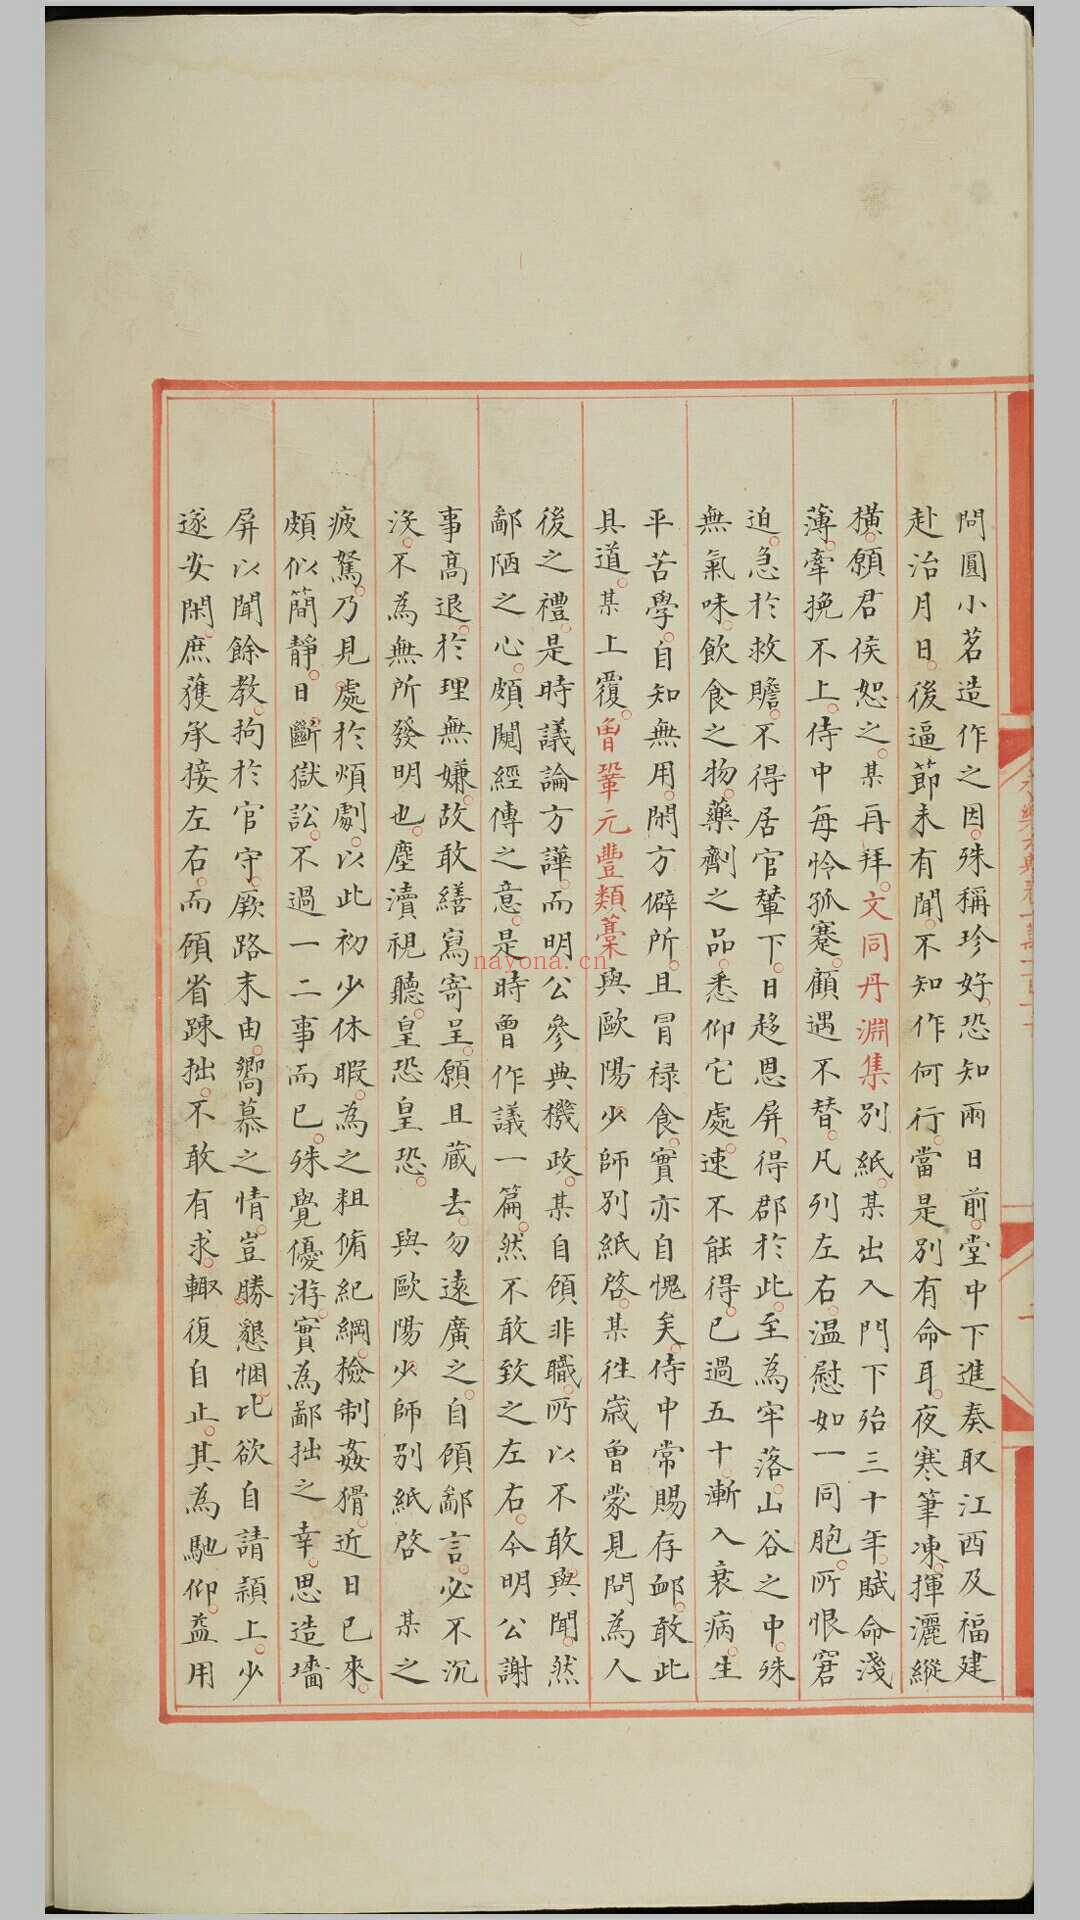 問圓小茗造作之因殊稱珍好恐知兩日前堂中下進奏取江西及福建
赴治月日後逼節未有聞不知作何行當是別有命耳夜寒筆凍揮灑縱
橫願君侯恕之某再拜文同丹淵集別紙某出入門下殆三十年賦命淺
薄牽挽不上侍中每怜孤蹇顧遇不替凡列左右温慰如一同胞所恨窘
迫急於救贍不得居官輦下日趍恩屏得郡於此至為牢落山谷之中殊
無氣味飲食之物藥劑之品悉仰它處速不能得已過五十漸入衰病生
平苦學自知無用閑方僻所且冒禄食實亦自愧矣侍中常賜存卹敢此
具道某上覆曾鞏元豐類藁與歐陽少師別紙啓某徃歲曾蒙見問為人
後之禮是時議論方譁而明公參典機政某自顧非職所以不敢與聞然
鄙陋之心頗闚經傳之意是時曾作議一篇然不敢致之左右今明公謝
事高退於理無嫌故敢繕寫寄呈願且蔵去勿遠廣之自顧鄙言必不沉
没不為無所發明也塵瀆視聽皇恐皇恐 與歐陽少師別紙啓 某之
疲駑乃見處於煩劇以此初少休暇為之粗脩紀綱檢制姦猾近日已來
頗似簡靜日斷獄訟不過一二事而已殊覺優游實為鄙拙之幸思造墻
屏以聞餘教拘於官守厥路末由嚮慕之情豈勝懇悃比欲自請潁上少
遂安閑庶獲承接左右而顧省踈拙不敢有求輙復自止其為馳仰益用
nayona.cn